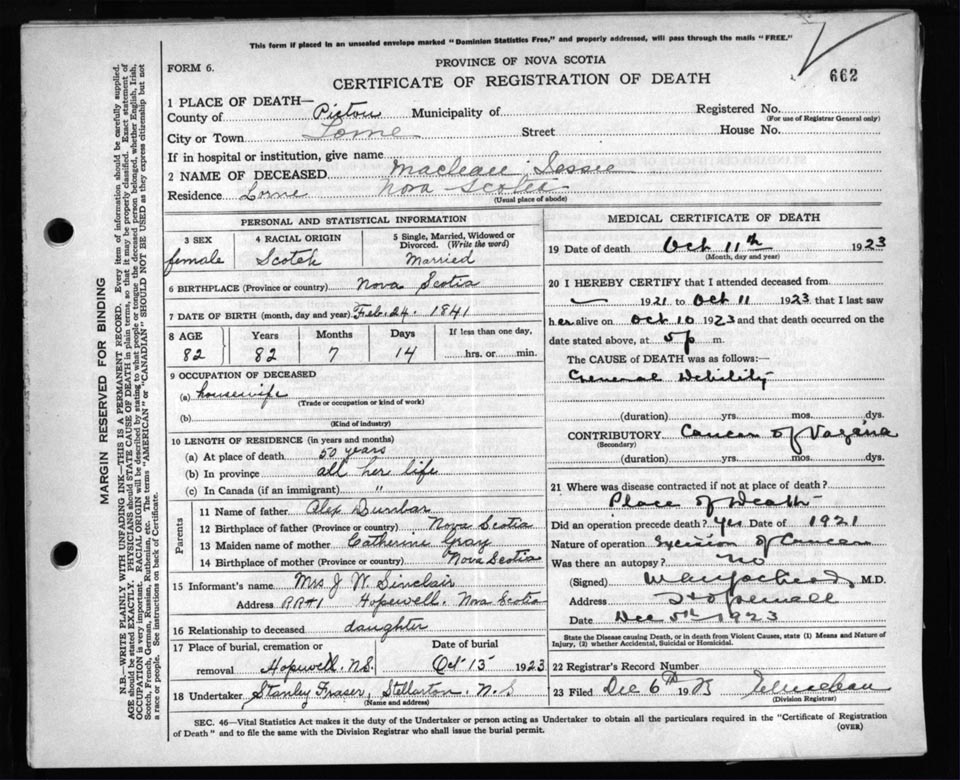 This form if placed in an unsealed envelope marked "Dominion Statistics Free," and properly addressed, will pass through the mails "FREE."
PROVINCE OF NOVA SCOTIA
FORM 6.
CERTIFICATE OF REGISTRATION OF DEATH
662
1 PLACE OF DEATH—
County of Pictou Municipality of
Registered No.
(For use of Registrar General only)
City or Town Lorne Street House No.
If in hospital or institution, give name
2 NAME OF DECEASED MacLean, Jessie
Residence Lorne Nova Scotia
(Usual place of abode)
PERSONAL AND STATISTICAL INFORMATION
3 SEX
female
4 RACIAL ORIGIN
Scotch
5 Single, Married, Widowed or Divorced. (Write the word)
Married
6 BIRTHPLACE (Province or country) Nova Scotia
7 DATE OF BIRTH (month, day and year) Feb. 24. 1841
8 AGE Years Months Days If less than one day,
82 82 7 14 hrs. or min.
9 OCCUPATION OF DECEASED
(a) housewife
(Trade or occupation or kind of work)
(b)
(Kind of industry)
10 LENGTH OF RESIDENCE (in years and months)
(a) At place of death 50 years
(b) In province all her life
(c) In Canada (if an immigrant) "
Parents
11 Name of father Alex Dunbar
12 Birthplace of father (Province or country) Nova Scotia
13 Maiden name of mother Catherine Gray
14 Birthplace of mother (Province or country) Nova Scotia
15 Informant's name Mrs J. W. Sinclair
Address RR#1 Hopewell. Nova Scotia
16 Relationship to deceased daughter
17 Place of burial, cremation or removal Hopewell. N.S.
Date of burial Oct 13 1923
18 Undertaker Stanley Fraser, Stellarton. N.S
(Name and address)
MEDICAL CERTIFICATE OF DEATH
19 Date of death Oct 11th 1923
(Month, day and year)
20 I HEREBY CERTIFY that I attended deceased from
1921 to Oct 11 1923 that I last saw
her alive on Oct 10 1923 and that death occurred on the
date stated above, at 5 p m.
The CAUSE of DEATH was as follows:—
General Debility
(duration) yrs. mos. dys.
CONTRIBUTORY Cancer of Vagina
(Secondary)
(duration) yrs. mos. dys.
21 Where was disease contracted if not at place of death?
Place of Death
Did an operation precede death? Yes Date of 1921
Nature of operation Excision of Cancer
Was there an autopsy? No
(Signed) M.D.
Address Hopewell
Date Dec 5th 1923
State the Disease causing Death, or in death from Violent Causes, state (1) Means and Nature of
Injury, (2) whether Accidental, Suicidal or Homicidal.
22 Registrar's Record Number
23 Filed Dec 6th 1923
(Division Registrar)
SEC. 46—Vital Statistics Act makes it the duty of the Undertaker or person acting as Undertaker to obtain all the particulars required in the "Certificate of Registration
of Death" and to file the same with the Division Registrar who shall issue the burial permit.
(OVER)
MARGIN RESERVED FOR BINDING
N.B.—WRITE PLAINLY WITH UNFADING INK—THIS IS A PERMANENT RECORD. Every item of information should be carefully supplied.
AGE should be stated EXACTLY. PHYSICIANS should STATE CAUSE OF DEATH in plain terms, so that it may be properly classified. Exact statement of
OCCUPATION is very important. RACIAL ORIGIN will be described by stating to what people or tongue the deceased person belonged, whether English, Irish,
Scotch, French, German, Russian, Ruthenian, etc. The terms "AMERICAN" or "CANADIAN" SHOULD NOT BE USED as they express citizenship but not
a race or people. See instructions on back of Certificate.